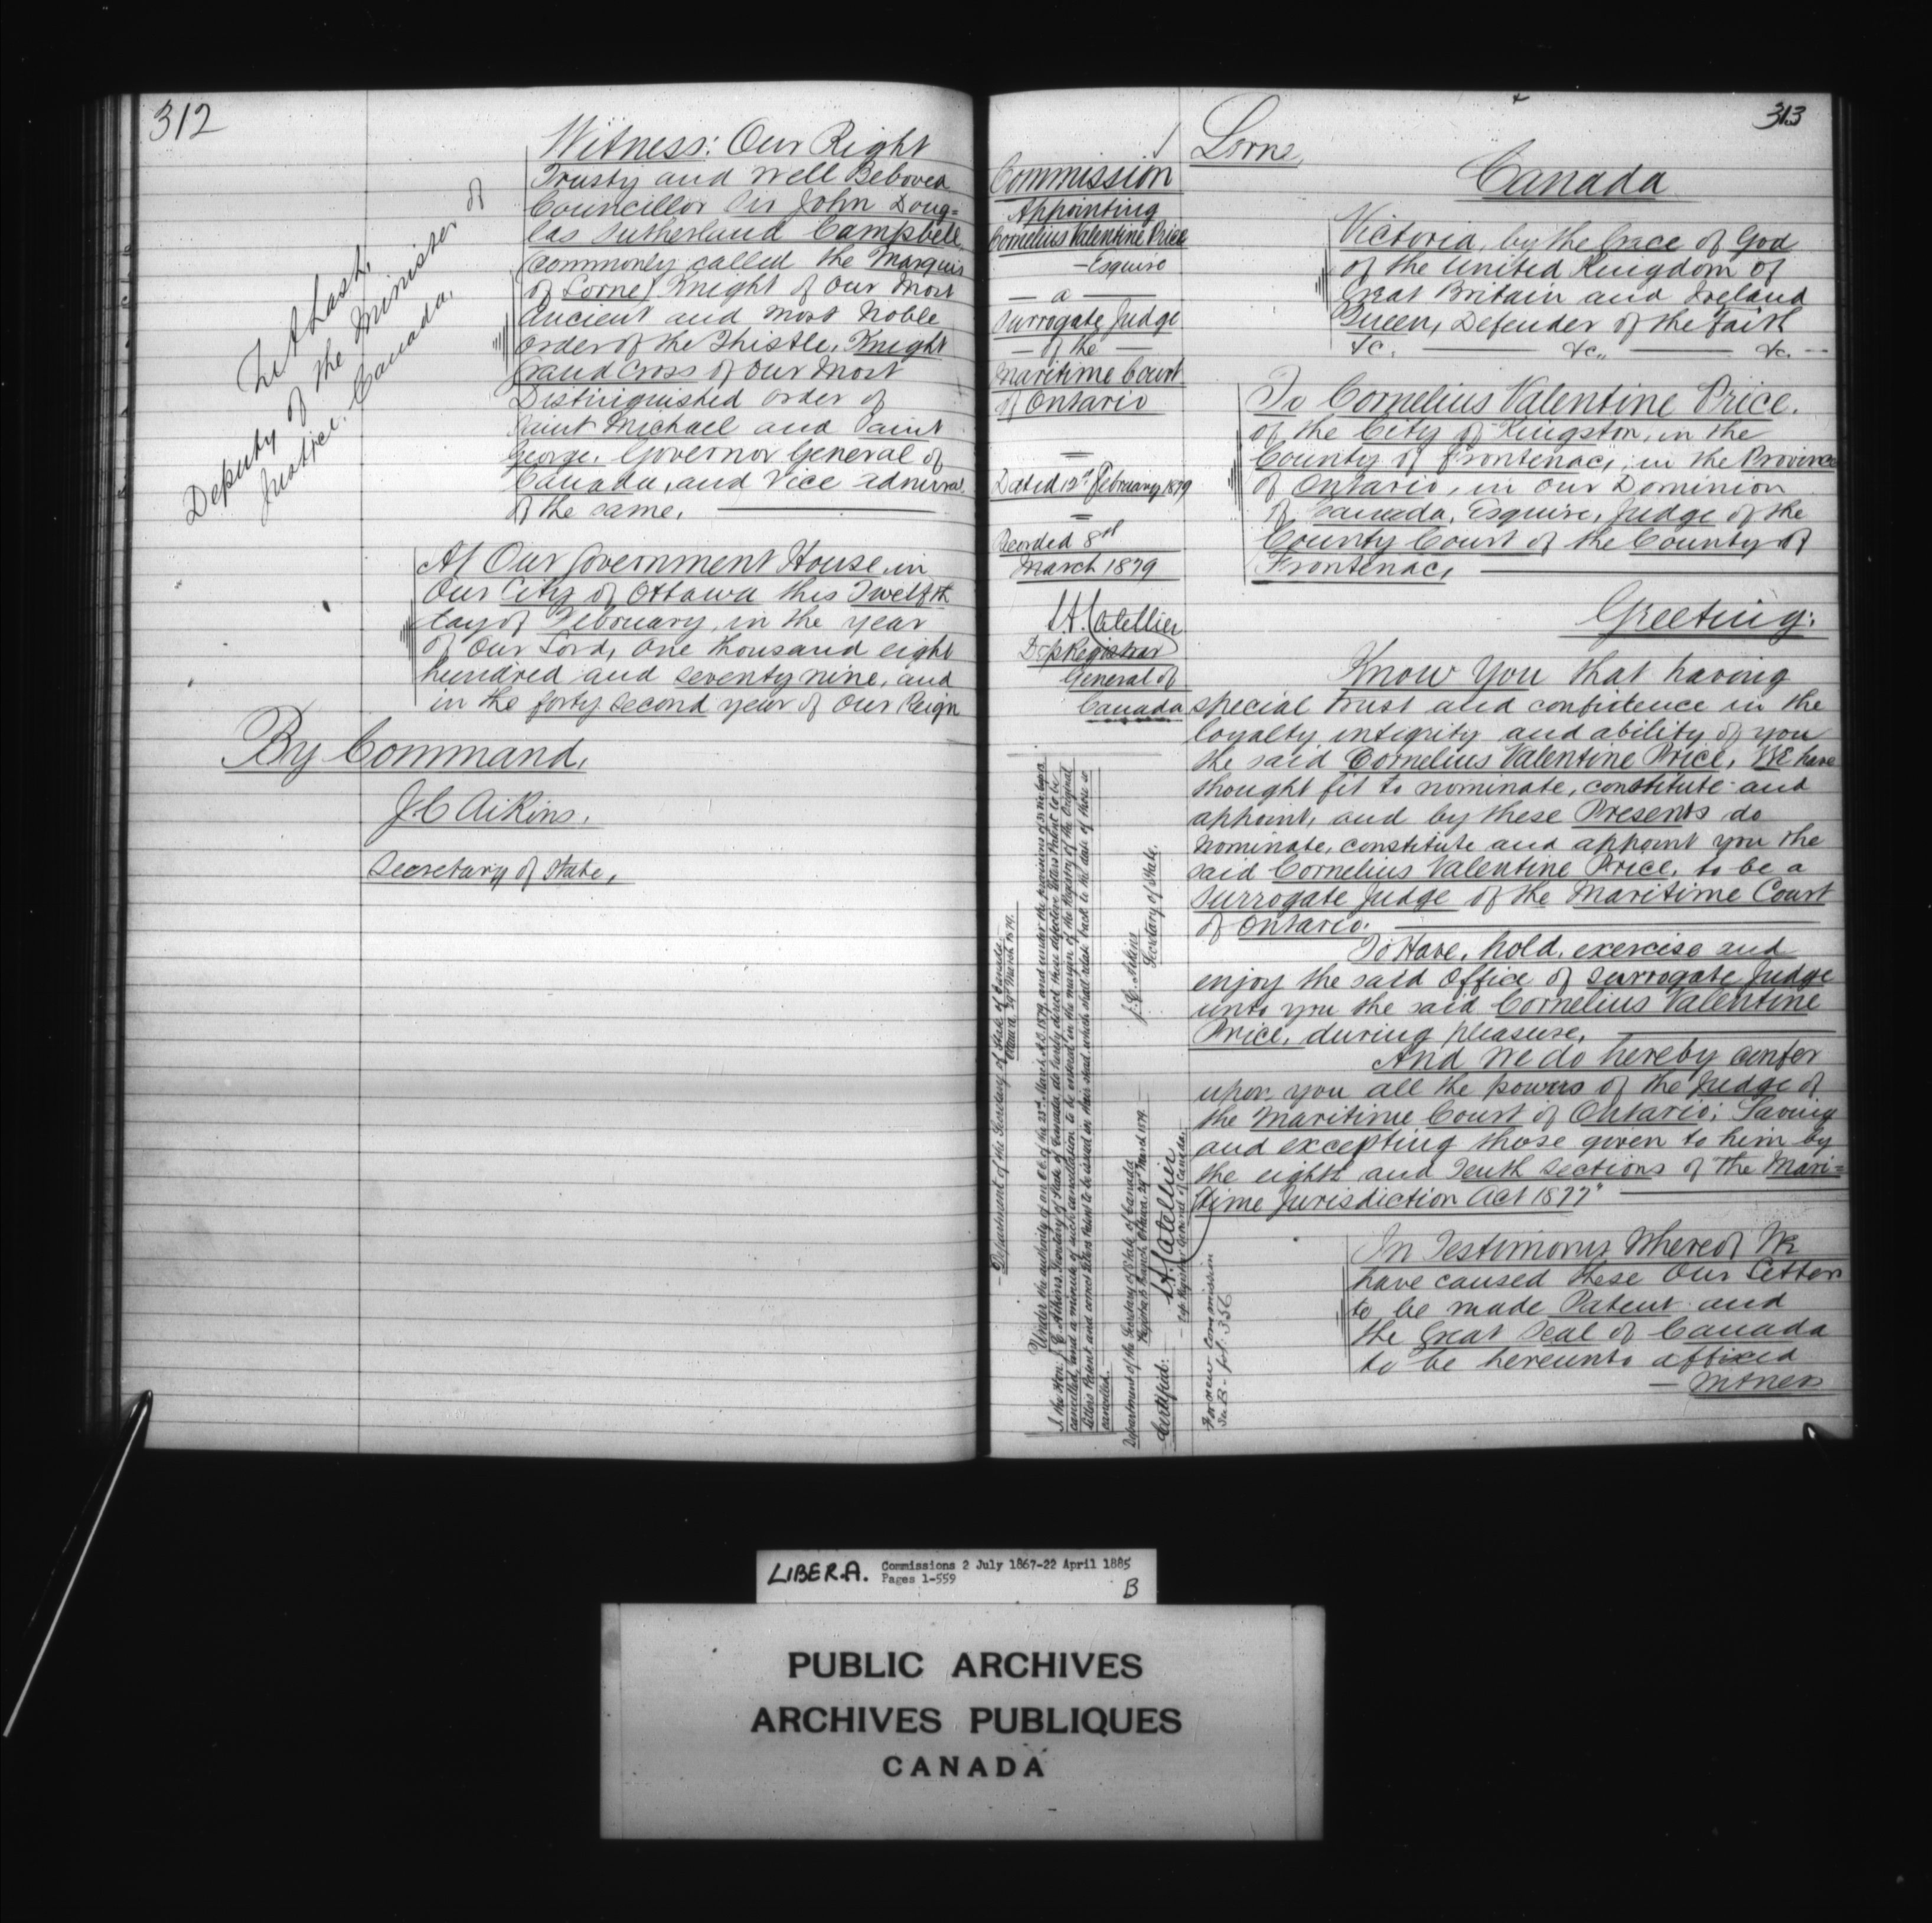 312
Witness: Our Right
Trusty and Well Beloved
Councillor Sir John Doug=
las Sutherland Campbell
(commonly called the Marquis
of Lorne) Knight of Our Most
Ancient and Most Noble
Order of the Thistle, Knight
Grand Cross of Our Most
Distinguished Order of
Saint Michael and Saint
George. Governor General of
Canada, and Vice Admiral
of the same.
Z A Lash,
Deputy of the Minister of
Justice, Canada.
At Our Government House, in
Our City of Ottawa this Twelfth
day of February, in the year
of Our Lord, One thousand eight
hundred and seventy nine, and
in the forty second year of Our Reign
By Command,
J C Aikins.
Secretary of State,
313
Lorne,
Canada
Commission
Appointing
Cornelius Valentine Price
Esquire
a
Surrogate Judge
of the
Maritime Court
of Ontario
Dated 12th February 1879
Recorded 8th
March 1879
L.A. Catellier
Dep Registrar
General of
Canada
Victoria, by the Grace of God
of the United Kingdom of
Great Britain and Ireland
Queen, Defender of the Faith
&c. &c., &c.
To Cornelius Valentine Price.
of the City of Kingston, in the
County of Frontenac, in the Province
of Ontario, in Our Dominion
of Canada, Esquire, Judge of the
County Court of the County of
Frontenac,
Greeting:
Know You that having
special trust and confidence in the
loyalty integrity and ability of you
the said Cornelius Valentine Price, WE have
thought fit to nominate, constitute and
appoint, and by these Presents do
nominate, constitute and appoint you the
said Cornelius Valentine Price, to be a
Surrogate Judge of the Maritime Court
of Ontario.
To Have, hold, exercise and
enjoy the said Office of Surrogate Judge
unto you the said Cornelius Valentine
Price, during pleasure.
And We do hereby confer
upon you all the powers of the Judge of
the Maritime Court of Ontario; Saving
and excepting those given to him by
the eighth and Tenth Sections of the Mari=
time Jurisdiction Act 1877"
In Testimony Whereof We
have caused these Our Letters
to be made Patent and
the Great Seal of Canada
to be hereunto affixed
Witness
Department of the Secretary of State of Canada
Ottawa, 29th March 1879.
Under the authority of an O.C. of the 25th March A.D. 1879, and under the provisions of 31 Vic. Cap
I, the Hon. J. C. Aikins, Secretary of State of Canada, do hereby direct these defective Letters Patent to be
cancelled, and a minute of such cancellation to be entered in the margin of the Registry of the Original
Letters Patent and correct Letters Patent to be issued in their stead which shall relate back to the date of those so
cancelled.
J. C. Aikins
Secretary of State.
Department of the Secretary of State of Canada
Registrar's Branch, Ottawa, 29th March 1879.
Certified:
L.A. Catellier
Dep. Registrar General of Canada.
For new Commission
see B - fol. 356
LIBER.A. Commissions 2 July 1867-22 April 1885
Pages 1-559
B
PUBLIC ARCHIVES
ARCHIVES PUBLIQUES
CANADA